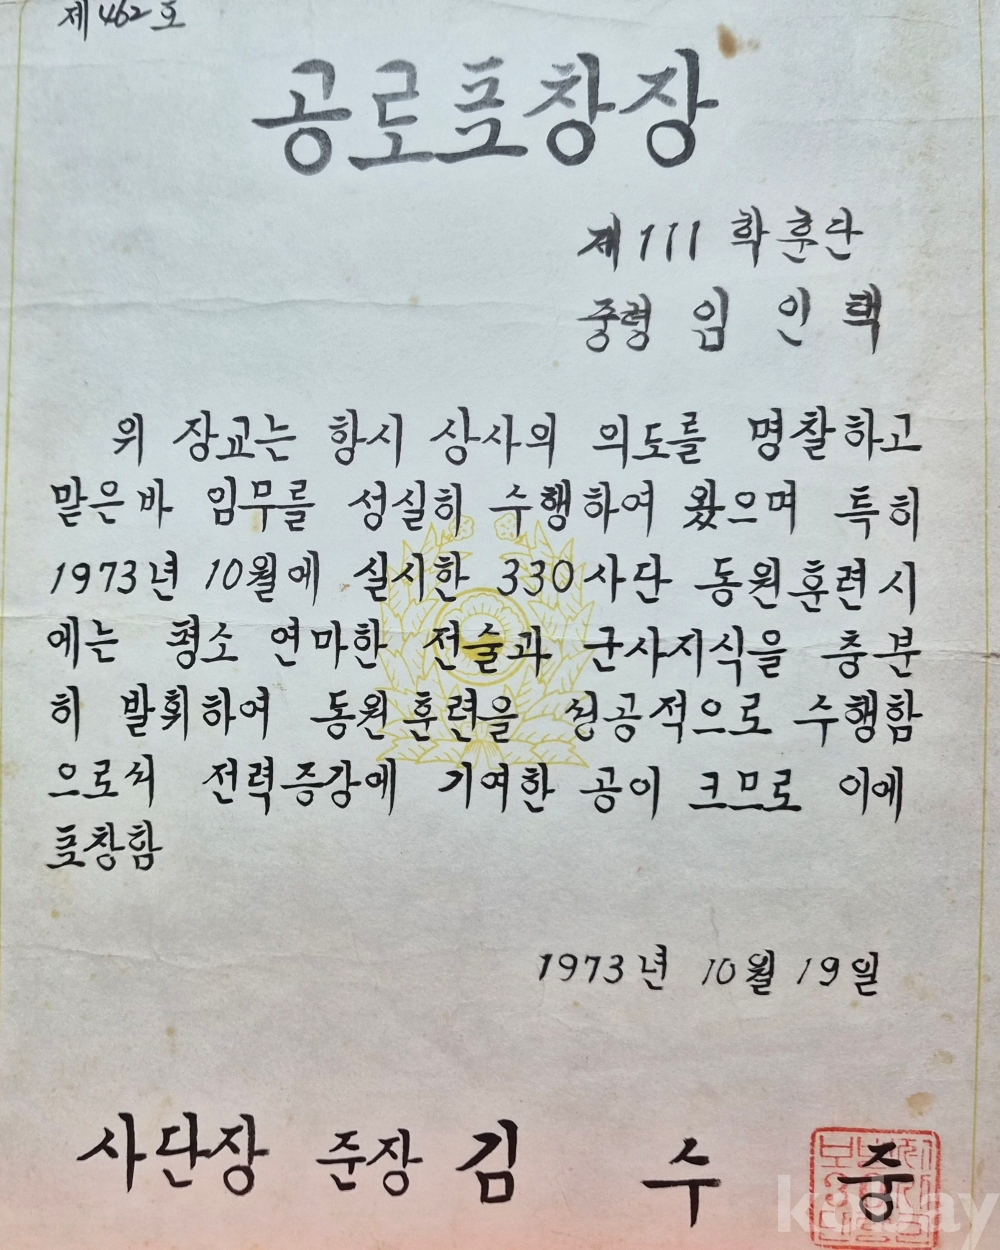 제 462 호
공로표창장
제111 학훈단
중령 임 인 택
위 장교는 항시 상사의 의도를 명찰하고
맡은바 임무를 성실히 수행하여 왔으며 특히
1973년 10월에 실시한 330사단 동원훈련시
에는 평소 연마한 전술과 군사지식을 충분
히 발휘하여 동원훈련을 성공적으로 수행함
으로써 전력증강에 기여한 공이 크므로 이에
표창함
1973년 10월 19일
사단장 준장 김 수 중
kobay